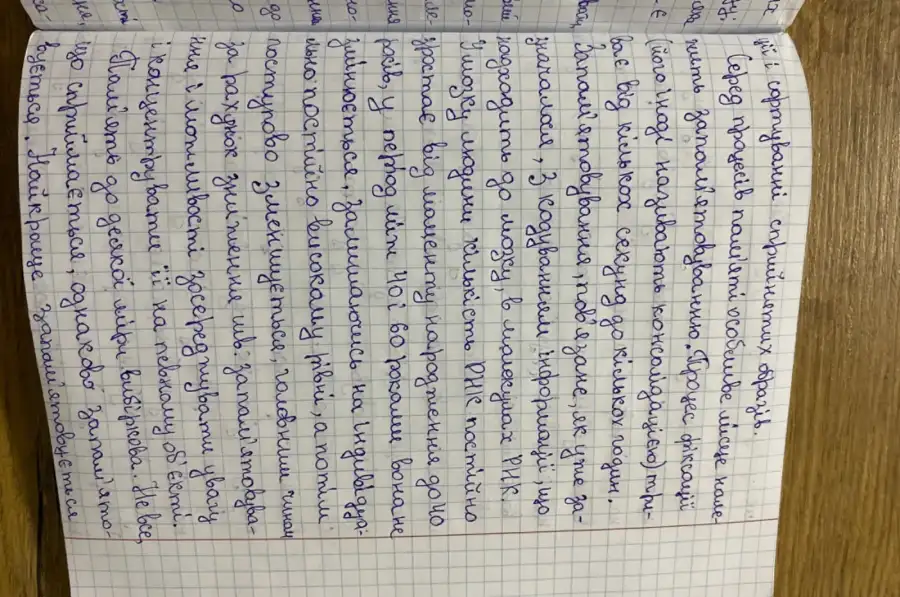 ції і сортуванні сприйнятих образів.
Серед процесів пам'яті особливе місце нале-
жить запам'ятовуванню. Процес фіксації
(його іноді називають консолідацією) три-
ває від кількох секунд до кількох годин.
Запам'ятовування, пов'язане, як уже за-
значалося, з кодуванням інформації, що
надходить до мозку, в молекулах РНК.
У мозку людини кількість РНК постійно
зростає від моменту народження до 40
років, у період між 40 і 60 роками вона не
змінюється, залишаючись на індивідуа-
льно постійно високому рівні, а потім
поступово зменшується, головним чином
за рахунок зниження шв. запам'ятовува-
ння і можливості зосереджувати увагу
і концентрувати її на певному об'єкті.
Пам'ять до деякої міри вибіркова. Не все,
що сприймається, однаково запам'ято-
вується. Найкраще запам'ятовується